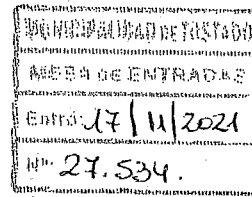 MUNICIPALIDAD DE TOSTADO
MESA DE ENTRADAS
Entró: 17/11/2021
Nº: 27.534.